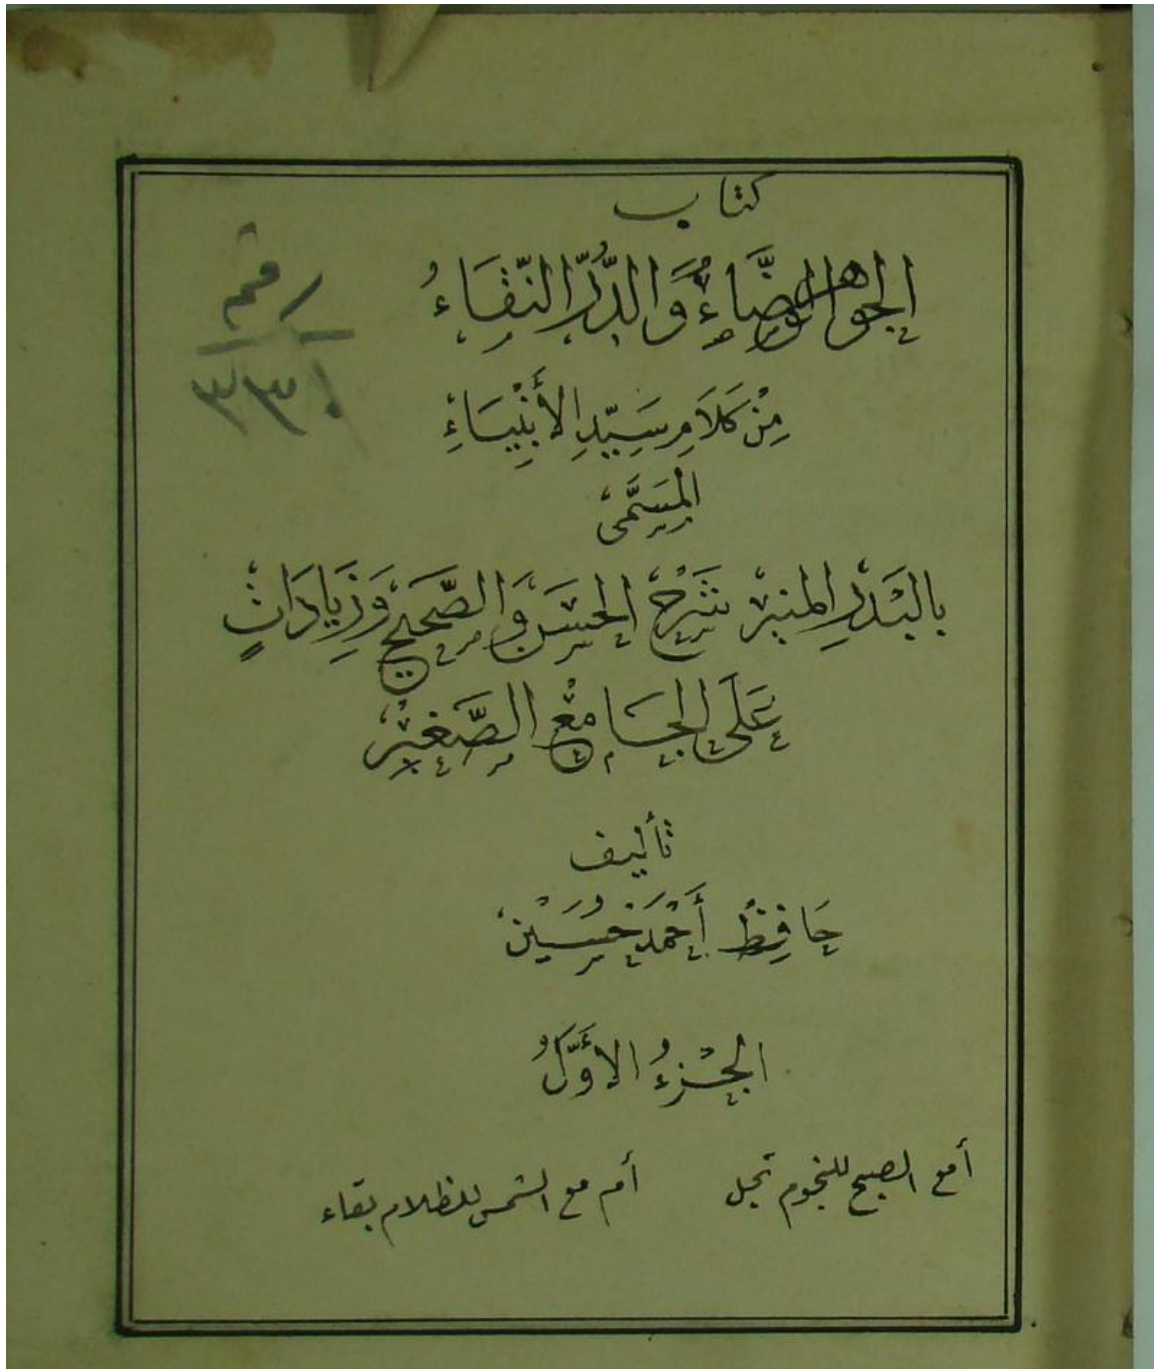 كتاب
الجواهر الوضَّاءُ وَالدُّرَرُ النّقَاءُ
مِنْ كَلَامِ سَيِّدِ الأَنْبِيَاءِ
المُسَمَّى
بالبَدْرِ المنير شَرْحُ الحَسَنِ وَالصَّحِيحِ وَزِيَادَاتٍ
عَلَى الجَامِعِ الصَّغِيْرِ
تأليف
حَافِظْ أَحْمَدْ حُسَيْن
الجُزءُ الأَوَّلُ
أمع الصبح للنجوم تجل أم مع الشمس للظلام بقاء
رقم